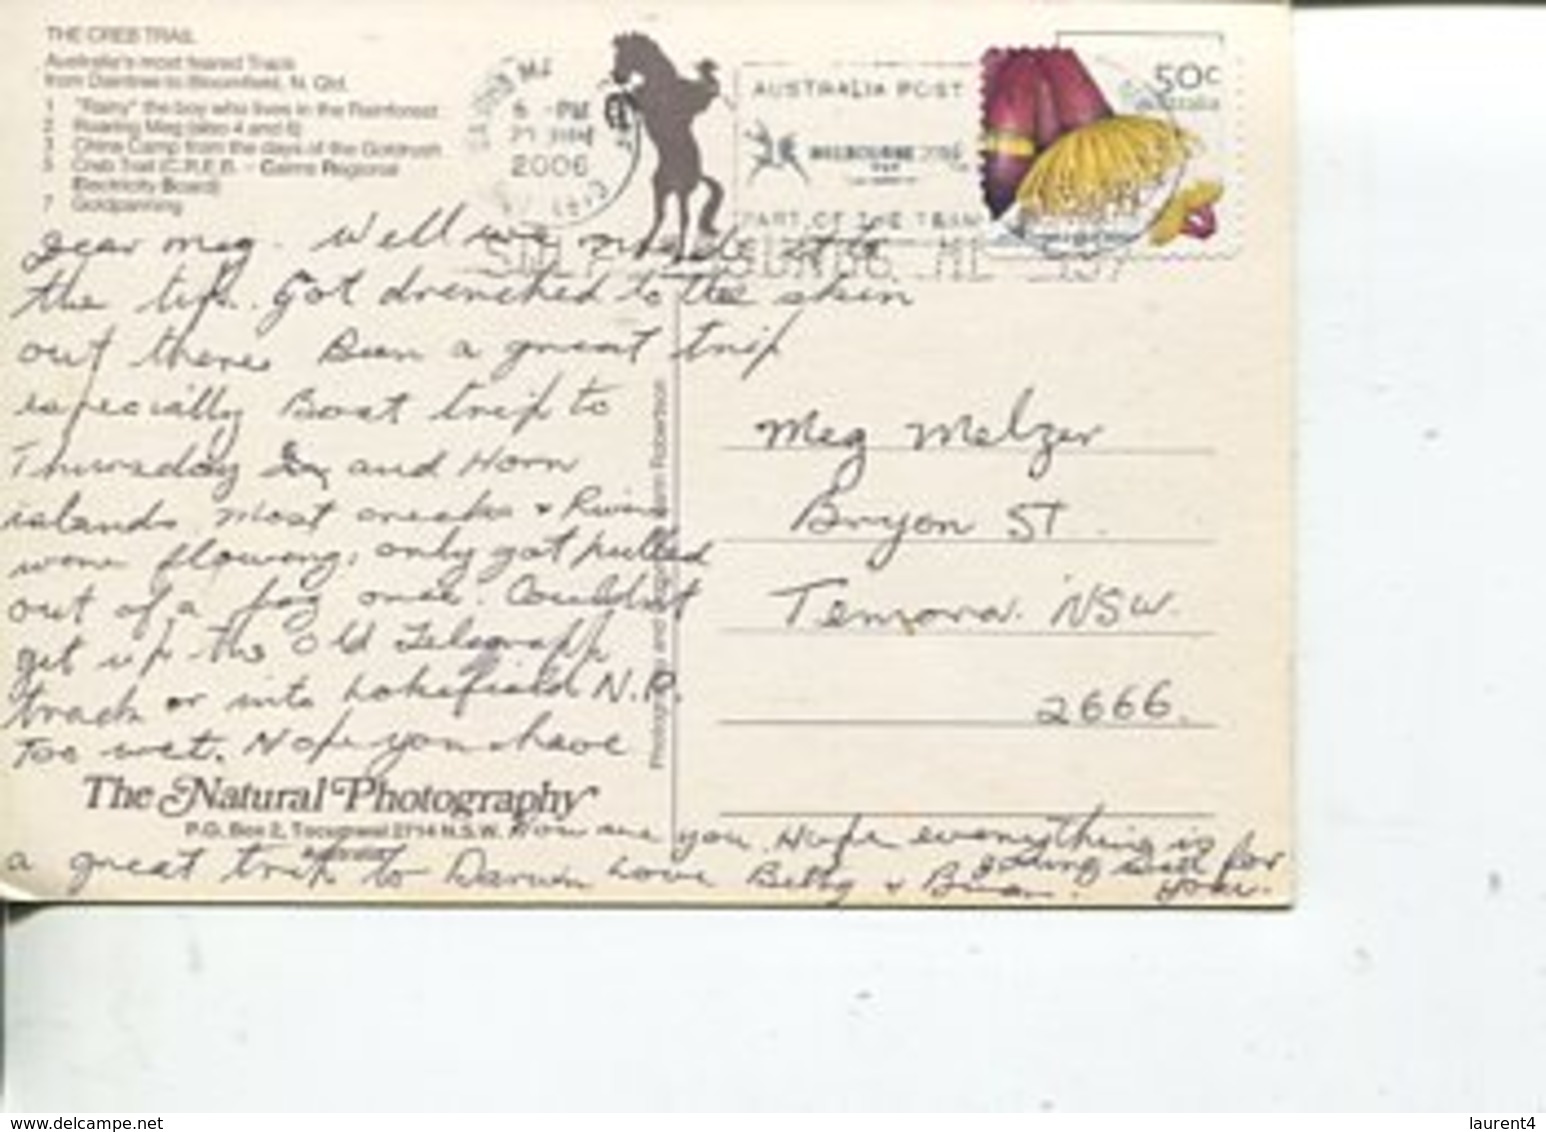 THE CREB TRAIL
Australia's most feared Track
from Daintree to Bloomfield, N. Qld.
1 "Rainy" the boy who lives in the Rainforest
2 Roaring Meg (also 4 and 6)
3 China Camp from the days of the Goldrush
5 Creb Trail (C.R.E.B. - Cairns Regional
Electricity Board)
7 Goldpanning
6 - PM
2006
AUSTRALIA POST
MELBOURNE 2006
PART OF THE TEAM
50c
Australia
Dear Meg. Well we made it to
the tip. Got drenched to the skin
out there. Been a great trip
especially Boat trip to
Thursday and Horn
islands. Most creeks + Rivers
were flowing, only got pulled
out of a bog once. Couldn't
get up the Old Telegraph
track or into Lakefield N.P.
Too wet. Hope you have
a great trip to Darwin Love Betty + Brian.
How are you. Hope everything is
going well for
you.
Meg Melzer
Bryon ST.
Temora. NSW.
2666.
Photography and
Robertson
The Natural Photography
P.O. Box 2, Tocumwal 2714 N.S.W.
Australia
www.delcampe.net
laurent4